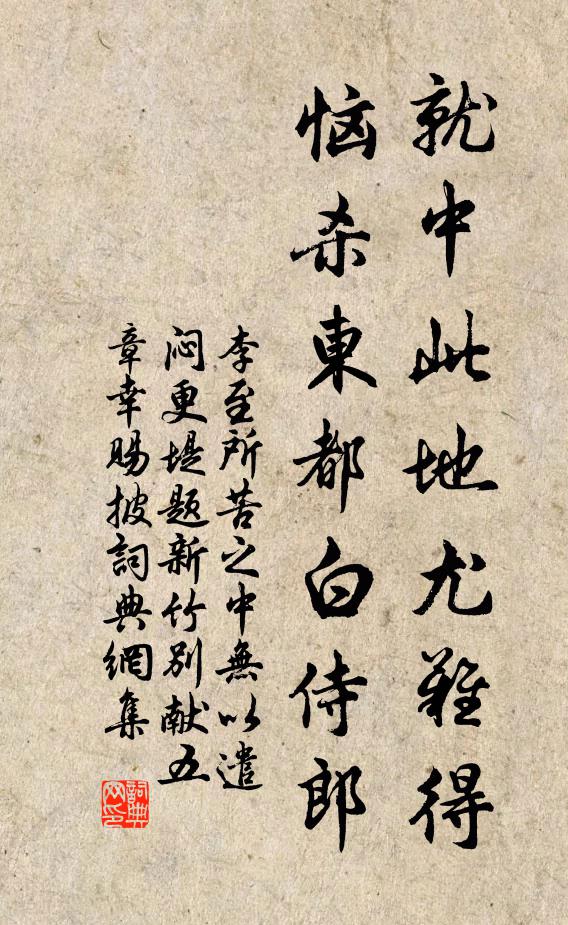 就中此地尤難得
恼杀東都白侍郎
李至所苦之中無以遣
闷更堤题新竹别献五
章幸赐披詞典網集
詞典网印